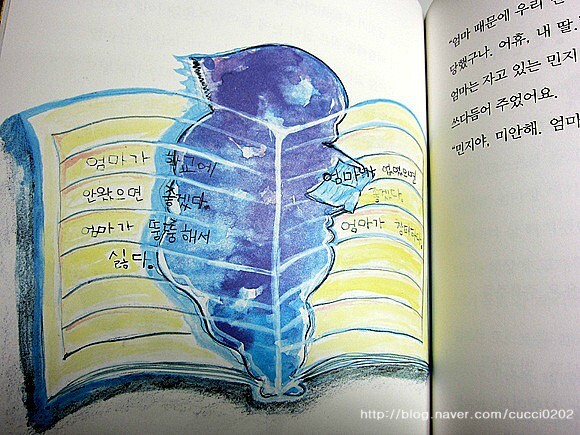 엄마가 학교에
안왔으면 좋겠다.
엄마가 뚱뚱해서
싫다.
엄마가
좋겠다.
엄마가 창피하다.
"엄마 때문에 우리
당했구나. 어휴, 내 딸.
엄마는 자고 있는 민지
쓰다듬어 주었어요.
"민지야, 미안해. 엄마
http://blog.naver.com/cucci0202